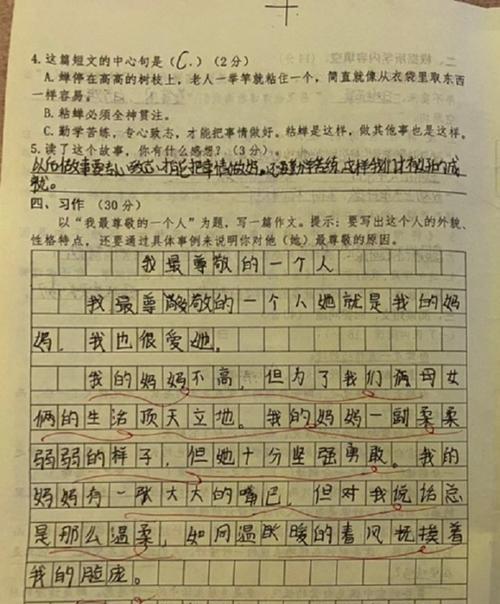 4.这篇短文的中心句是（C.）（2分）
A.蝉停在高高的树枝上，老人一举竿就粘住一个，简直就像从衣袋里取东西
一样容易。
B.粘蝉必须全神贯注。
C.勤学苦练，专心致志，才能把事情做好。粘蝉是这样，做其他事也是这样。
5.读了这个故事，你有什么感想？（3分）。
做故事要专心致志，才能把事情做好。还要勤学苦练，这样我们才有好的成
就。
四、习作（30分）
以“我最尊敬的一个人”为题，写一篇作文。提示：要写出这个人的外貌、
性格特点，还要通过具体事例来说明你对他（她）最尊敬的原因。
我最尊敬的一个人
我最尊敬的一个人她就是我的妈
妈，我也很爱她。
我的妈妈不高，但为了我们俩母女
俩的生活顶天立地。我的妈妈一副柔柔
弱弱的样子，但她十分坚强勇敢。我的
妈妈有一张大大的嘴巴，但对我说话总
是那么温柔，如同温暖的春风抚挨着
我的脸庞。